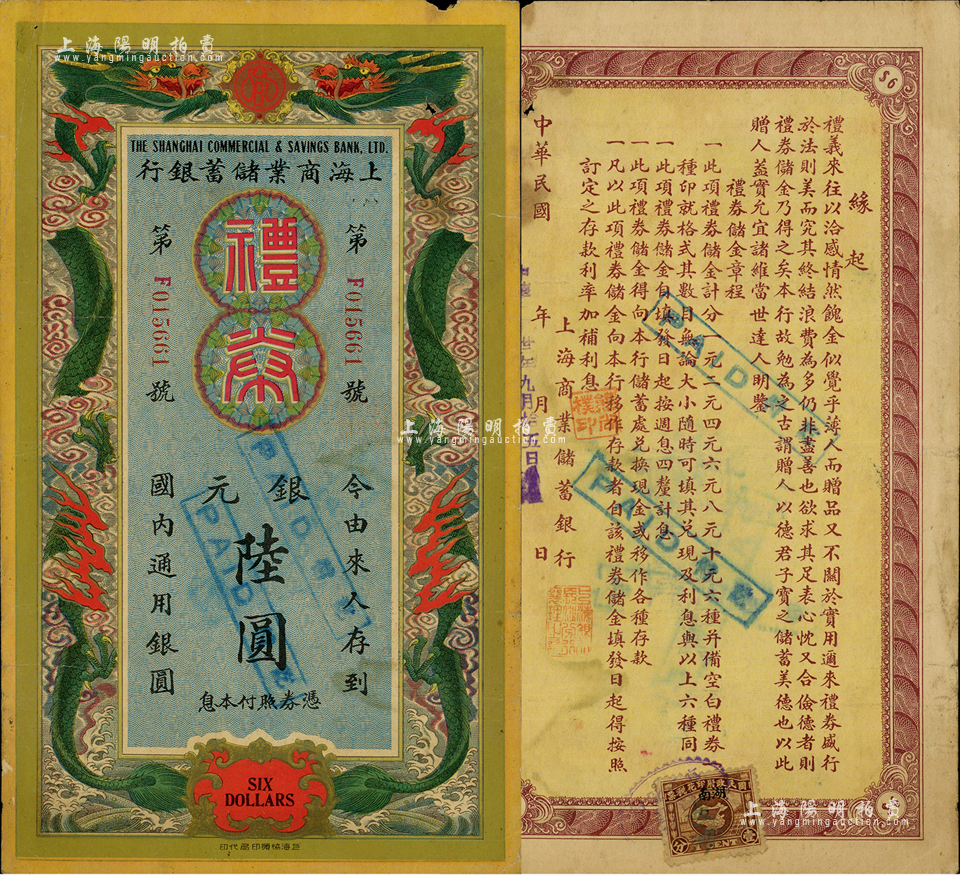 上海陽明拍賣
www.yangmingauction.com
THE SHANGHAI COMMERCIAL & SAVINGS BANK, LTD.
行銀蓄儲業商海上
禮券
第 F015661 號
第 F015661 號
今由來人存到
銀元
陸圓
國內通用銀圓
息本付照券憑
PAID
PAID
SIX
DOLLARS
$6
緣起
禮義來往以洽感情然餽金似覺乎薄人而贈品又不關於實用邇來禮券盛行
於法則美而究其終結浪費為多仍非盡善也欲求其足表心忱又合儉德者則
禮券儲金乃得之矣本行故勉為之古謂贈人以德君子寶之儲蓄美德也以此
贈人蓋實允宜諸維當世達人明鑒
禮券儲金章程
一此項禮券儲金計分一元二元四元六元八元十元六種并備空白禮券
種印就格式其數目無論大小隨時可填其兌現及利息與以上六種同
一此項禮券儲金自填發日起按週息四釐計息
一此項禮券儲金得向本行儲蓄處兌換現金或移作各種存款
一凡以此項禮券儲金向本行移作存款者自該禮券儲金填發日起得按照
訂定之存款利率加補利息
上海商業儲蓄銀行
中華民國 年 月 日
九月
PAID
PAID
湖南
1 CENT
上海陽明拍賣
www.yangmingauction.com
上海陽明拍賣
www.yangmingauction.com